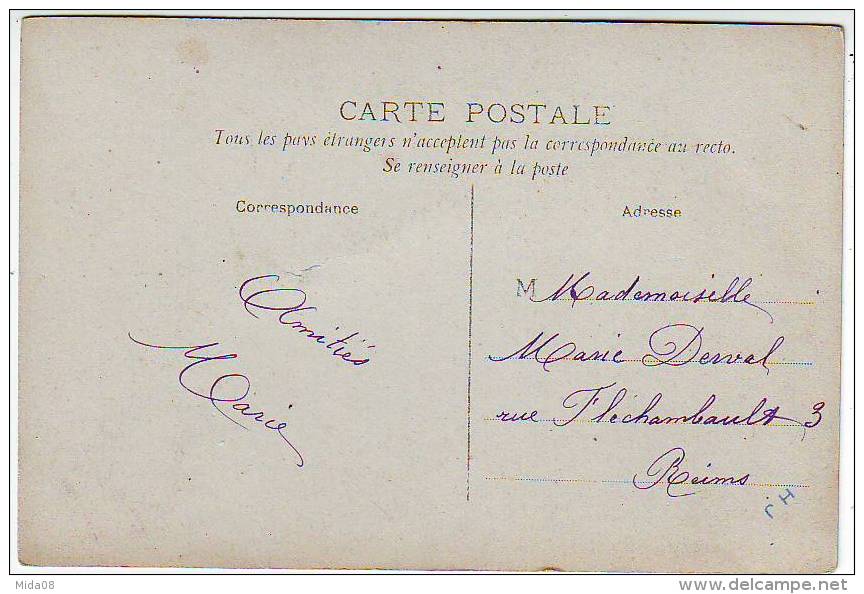 CARTE POSTALE
Tous les pays étrangers n'acceptent pas la correspondance au recto.
Se renseigner à la poste
Correspondance
Adresse
Amitiés
Marie
M Mademoiselle
Marie Derval
rue Fléchambault 3
Reims
Mida08
delcampe.net